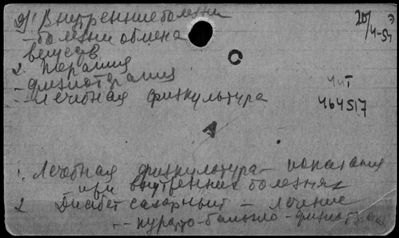 Внутренние болезни
25/4-54
- болезни обмена
веществ
2. Терапия
- физиотерапия
чит
- Лечебная физкультура
464517
1. Лечебная физкультура – показания
при внутренних болезнях
2. Диабет сахарный – лечение
-- курорто-бальнео-физиотер